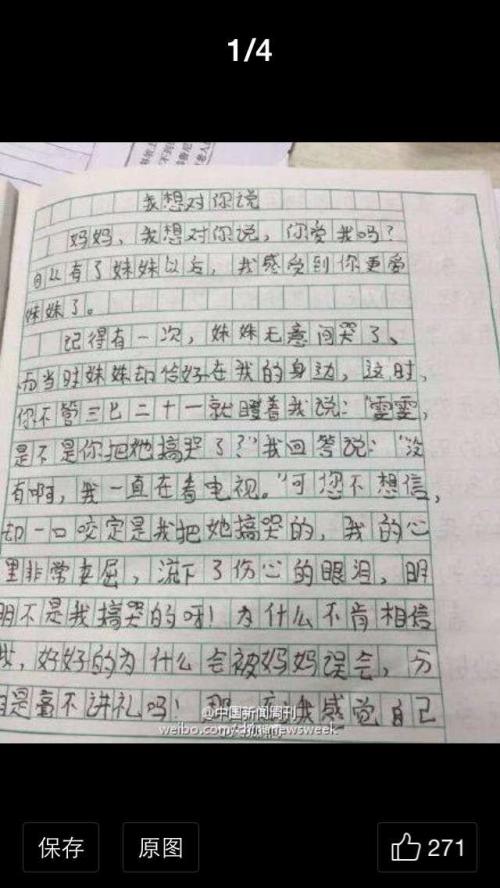 1/4
我想对你说
妈妈，我想对你说，你爱我吗？
自从有了妹妹以后，我感受到你更爱
妹妹了。
记得有一次，妹妹无意间哭了、
而当时妹妹却恰好在我的身边，这时，
你不管三七二十一就瞪着我说：“雯雯，
是不是你把她搞哭了？”我回答说：“没
有啊，我一直在看电视。”可您不想信，
却一口咬定是我把她搞哭的，我的心
里非常委屈，流下了伤心的眼泪，明
明不是我搞哭的呀！为什么不肯相信
我，好好的为什么会被妈妈误会，分
是毫不讲礼吗！那 我感觉自己
@中国新闻周刊
weibo.com/chinanewsweek
保存
原图
271